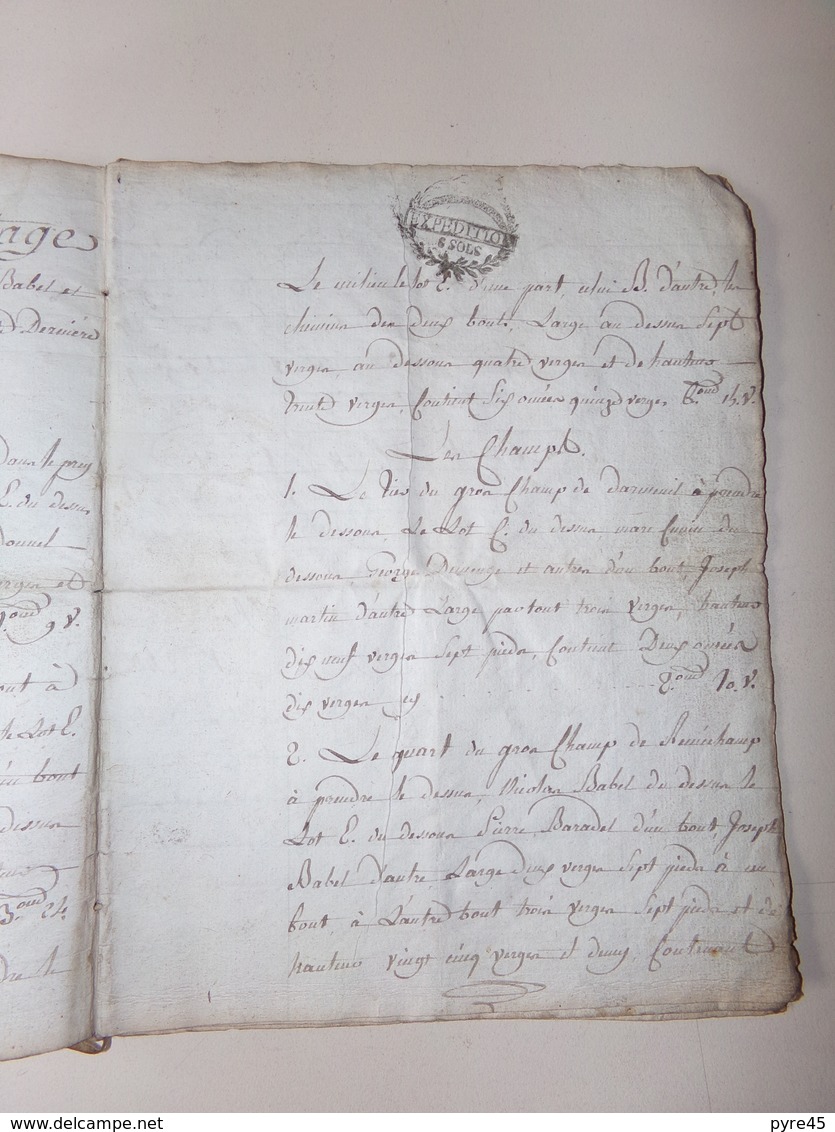 tage
Babel et
Derniere
dans le prey
E. du dessus
verges et
9 V.
out à
le Lot E.
un bout
dessus
dre le
EXPEDITION
6 SOLS
Le milieu le lot E. d'une part, celui B. d'autre, les
chemins des deux bouts, Large au dessus Sept
verges, au dessous quatre verges et de hauteur
trente verges, Contient Six omées quinze verges 6. omé 15. V.
Les Champs.
1. Le Tier du gros Champ de darmeuil à prendre
le dessous, Le Lot E. du dessus marc Cuvin du
dessous, George et autres d'un bout, Joseph
martin d'autre Large partout trois verges, hauteur
dix neuf verges Sept pieds, Contient Deux omées
dix verges cy 2. omé 10. V.
2. Le quart du gros Champ de Remèchamp
à prendre le dessus, Nicolas Babel du dessus le
Lot E. du dessous Pierre Baradel d'un bout, Joseph
Babel d'autre, Large deux verges Sept pieds à un
bout, à L'autre bout trois verges Sept pieds et de
hauteur vingt cinq verges et demy, Contenant
pyre45